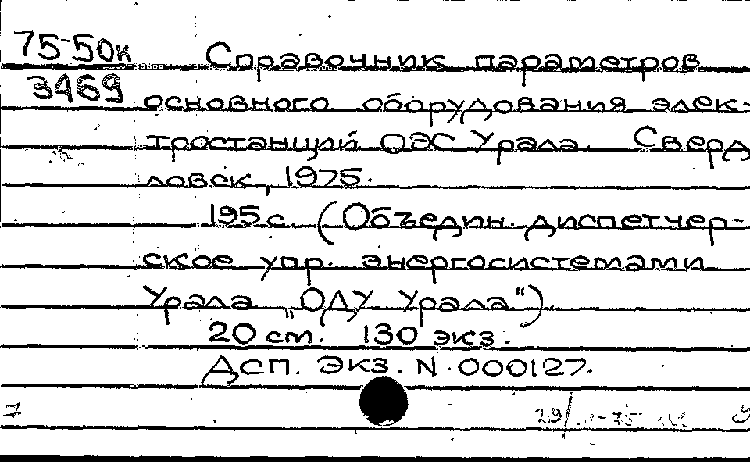 75-50к Справочник параметров
3469 основного оборудования элек-
тростанций ОЭС Урала. Сверд
ловск, 1975.
195 с. (Объедин. диспетчер-
ское упр. энергосистемами
Урала „ОДУ Урала")
20 ст. 130 экз.
Дсп. Экз. N 000127.